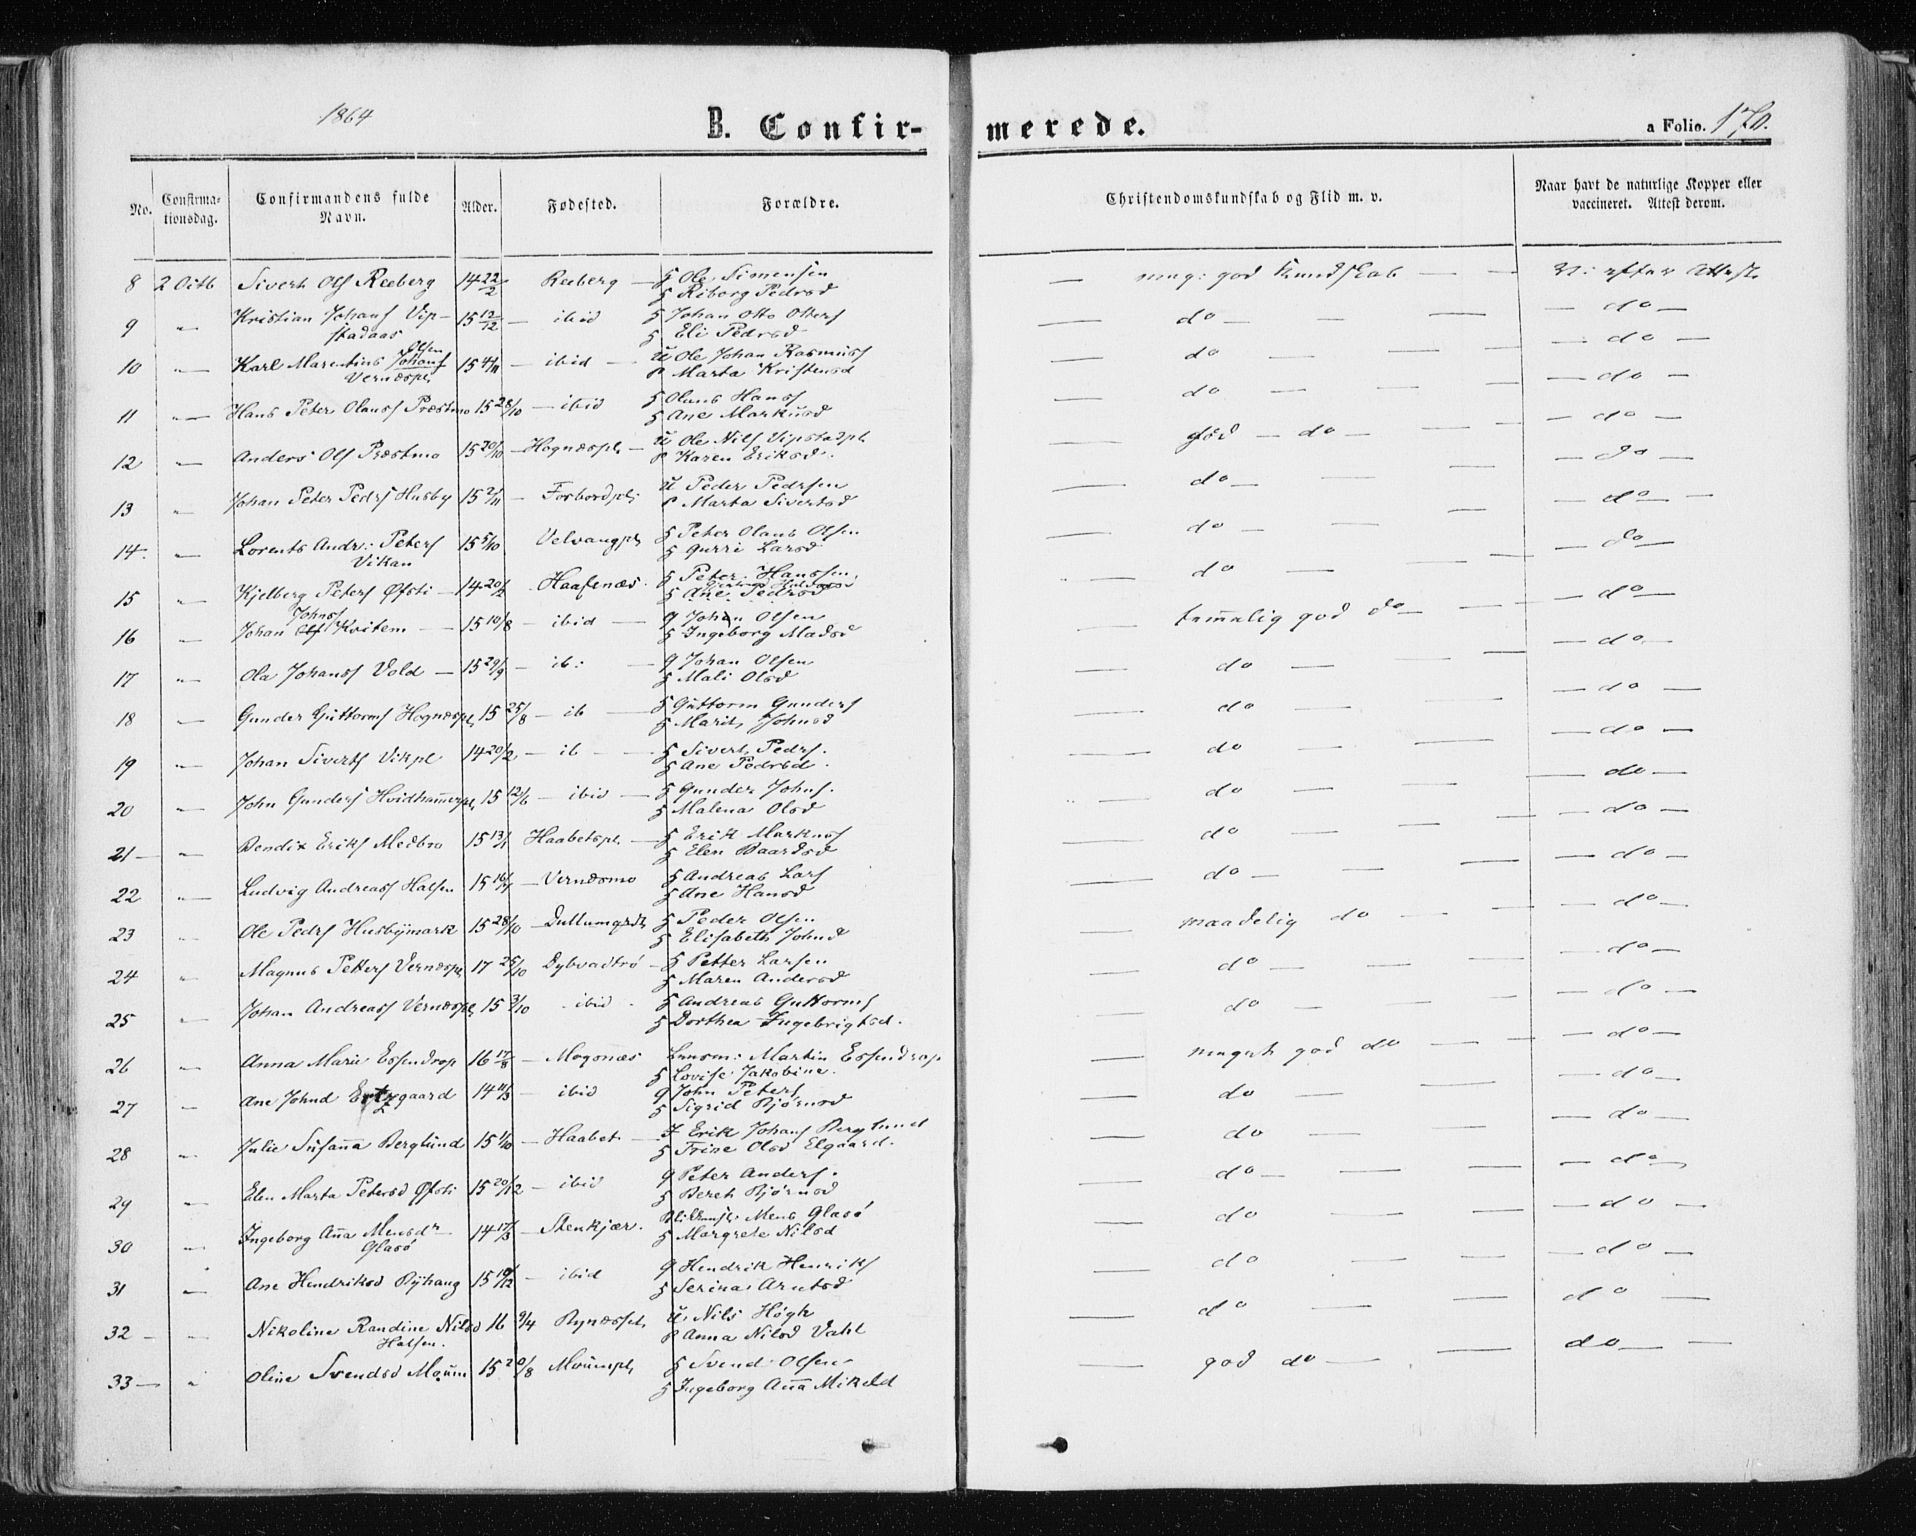 1864
B. Confir-
merede.
a Folio. 170.
No.
Confirma-
tionsdag.
Confirmandens fulde
Navn.
Alder.
Fødested.
Forældre.
Christendomskundskab og Flid m. v.
Naar havt de naturlige Kopper eller
vaccineret. Attest derom.
8 2 Octb Sivert Ols Reeberg 14 22/2 Reeberg — G Ole Simensen — meg: god Kundskab — — V: efter Attest
G Riborg Pedrsd
9 " Kristian Johans Vip- 15 12/12 — ibid G Johan Otto Otters — do — — — do —
stadaas G Eli Pedrsd
10 " Karl Marentius Johans Olsen 15 4/11 — ibid — U Ole Johan Rasmuss — do — — — do —
Vernæspl P Marta Kristensd
11 " Hans Peter Olauss Præstmo 15 28/10 — ibid G Olaus Hanss — do — — — do —
G Ane Markusd
12 " Anders Ols Præstmo 15 20/10 — Hognæspl — U Ole Nils Vipstadpl — god — do — — do —
P Karen Eriksd.
13 " Johan Peter Pedrs Husby 15 2/11 — Forbordpl U Peder Pedrsen — do — — — do —
P Marta Sivertsd
14. " Lorents Andr: Peters 15 5/10 Velvangpl G Peter Olaus Olsen — do — — — do —
Vikan G Gurri Larsd
15 " Kjelberg Peters Øfsti — 14 20/2 Haafenæs. G Peter Hanssen — do — — — do —
G Ane Pedrsd
16 " Johan Ols Johns Kvitem — 15 10/8 — ibid — G Johan Olsen — temmelig god do — — do —
G Ingeborg Madsd
17 " Ola Johanss Vold — 15 29/9 — ib: — G Johan Olsen — do — — — do —
G Mali Olsd
18 " Gunder Guttorms Hognæspl 15 25/8 — ib — G Guttorm Gunders — do — — — do —
G Marit Johnsd
19 " Johan Siverts Vikpl 14 20/2 — ib — G Sivert Pedrs. — do — — — do —
G Ane Pedrsd.
20 " John Gunders Hvidhammerpl 15 12/6 — ibid — G Gunder Johns. — do — — — do —
G Malena Olsd
21 — " Bendix Eriks Medbro 15 13/1 Haabetspl. — G Erik Markuss — do — — — do —
G Elen Baardsd
22 " Ludvig Andreass Halsen 15 16/7 — Vernæsmo G Andreas Lars — do — — — do —
G Ane Hansd
23 " Ole Pedrs Husbymark 15 28/10 — Dullumgrdr G Peder Olsen — maadelig do — — do —
G Elisabeth Johnd
24 " Magnus Petters Vernæspl 17 25/10 Dybvadtrø — G Petter Larsen — do — — — do —
G Maren Andersd
25 " Johan Andreass Vernæspl 15 3/10 ibid. G Andreas Guttorms — do — — do —
G Dorthea Ingebrigtsd.
26 " Anna Marie Essendrop 16 17/8 — Mogsnæs Lensm: Martin Essendrop — meget god do — — do —
G Lovise Jakobine.
27 " Ane Johnd Ertzgaard 14 11/3 — ibid G John Peters — do — — do —
G Sigrid Bjørnsd
28 " Julie Susanna Berglund 15 1/10 — Haabet — F Erik Johans Berglund — do — — do —
G Trine Olsd Elgaard.
29 " Elen Marta Petersd Øfsti 15 20/12 — ibid G Peter Anders. — do — — — do —
G Bereth Bjørnsd
30 " Ingeborg Anna Mensdr 14 17/3 — Stenkjær. Mens Glasø — do — — — do —
Glasø G Margrete Nilsd
31 " Ane Hendriksd Ryhaug 15 10/12 — ibid G Hendrik Henriks — do — — — do —
G Serina Arntsd
32 — " Nikoline Randine Nilsd 16 9/4 Rynæspl U. Nils Høgh — do — — — do —
Halsen. P Anna Nilsd Vahl
33 — " Oline Svendsd Moum 15 20/8 Moumpl G Svend Olsen — god do — — do —
G Ingeborg Anna Mikeld